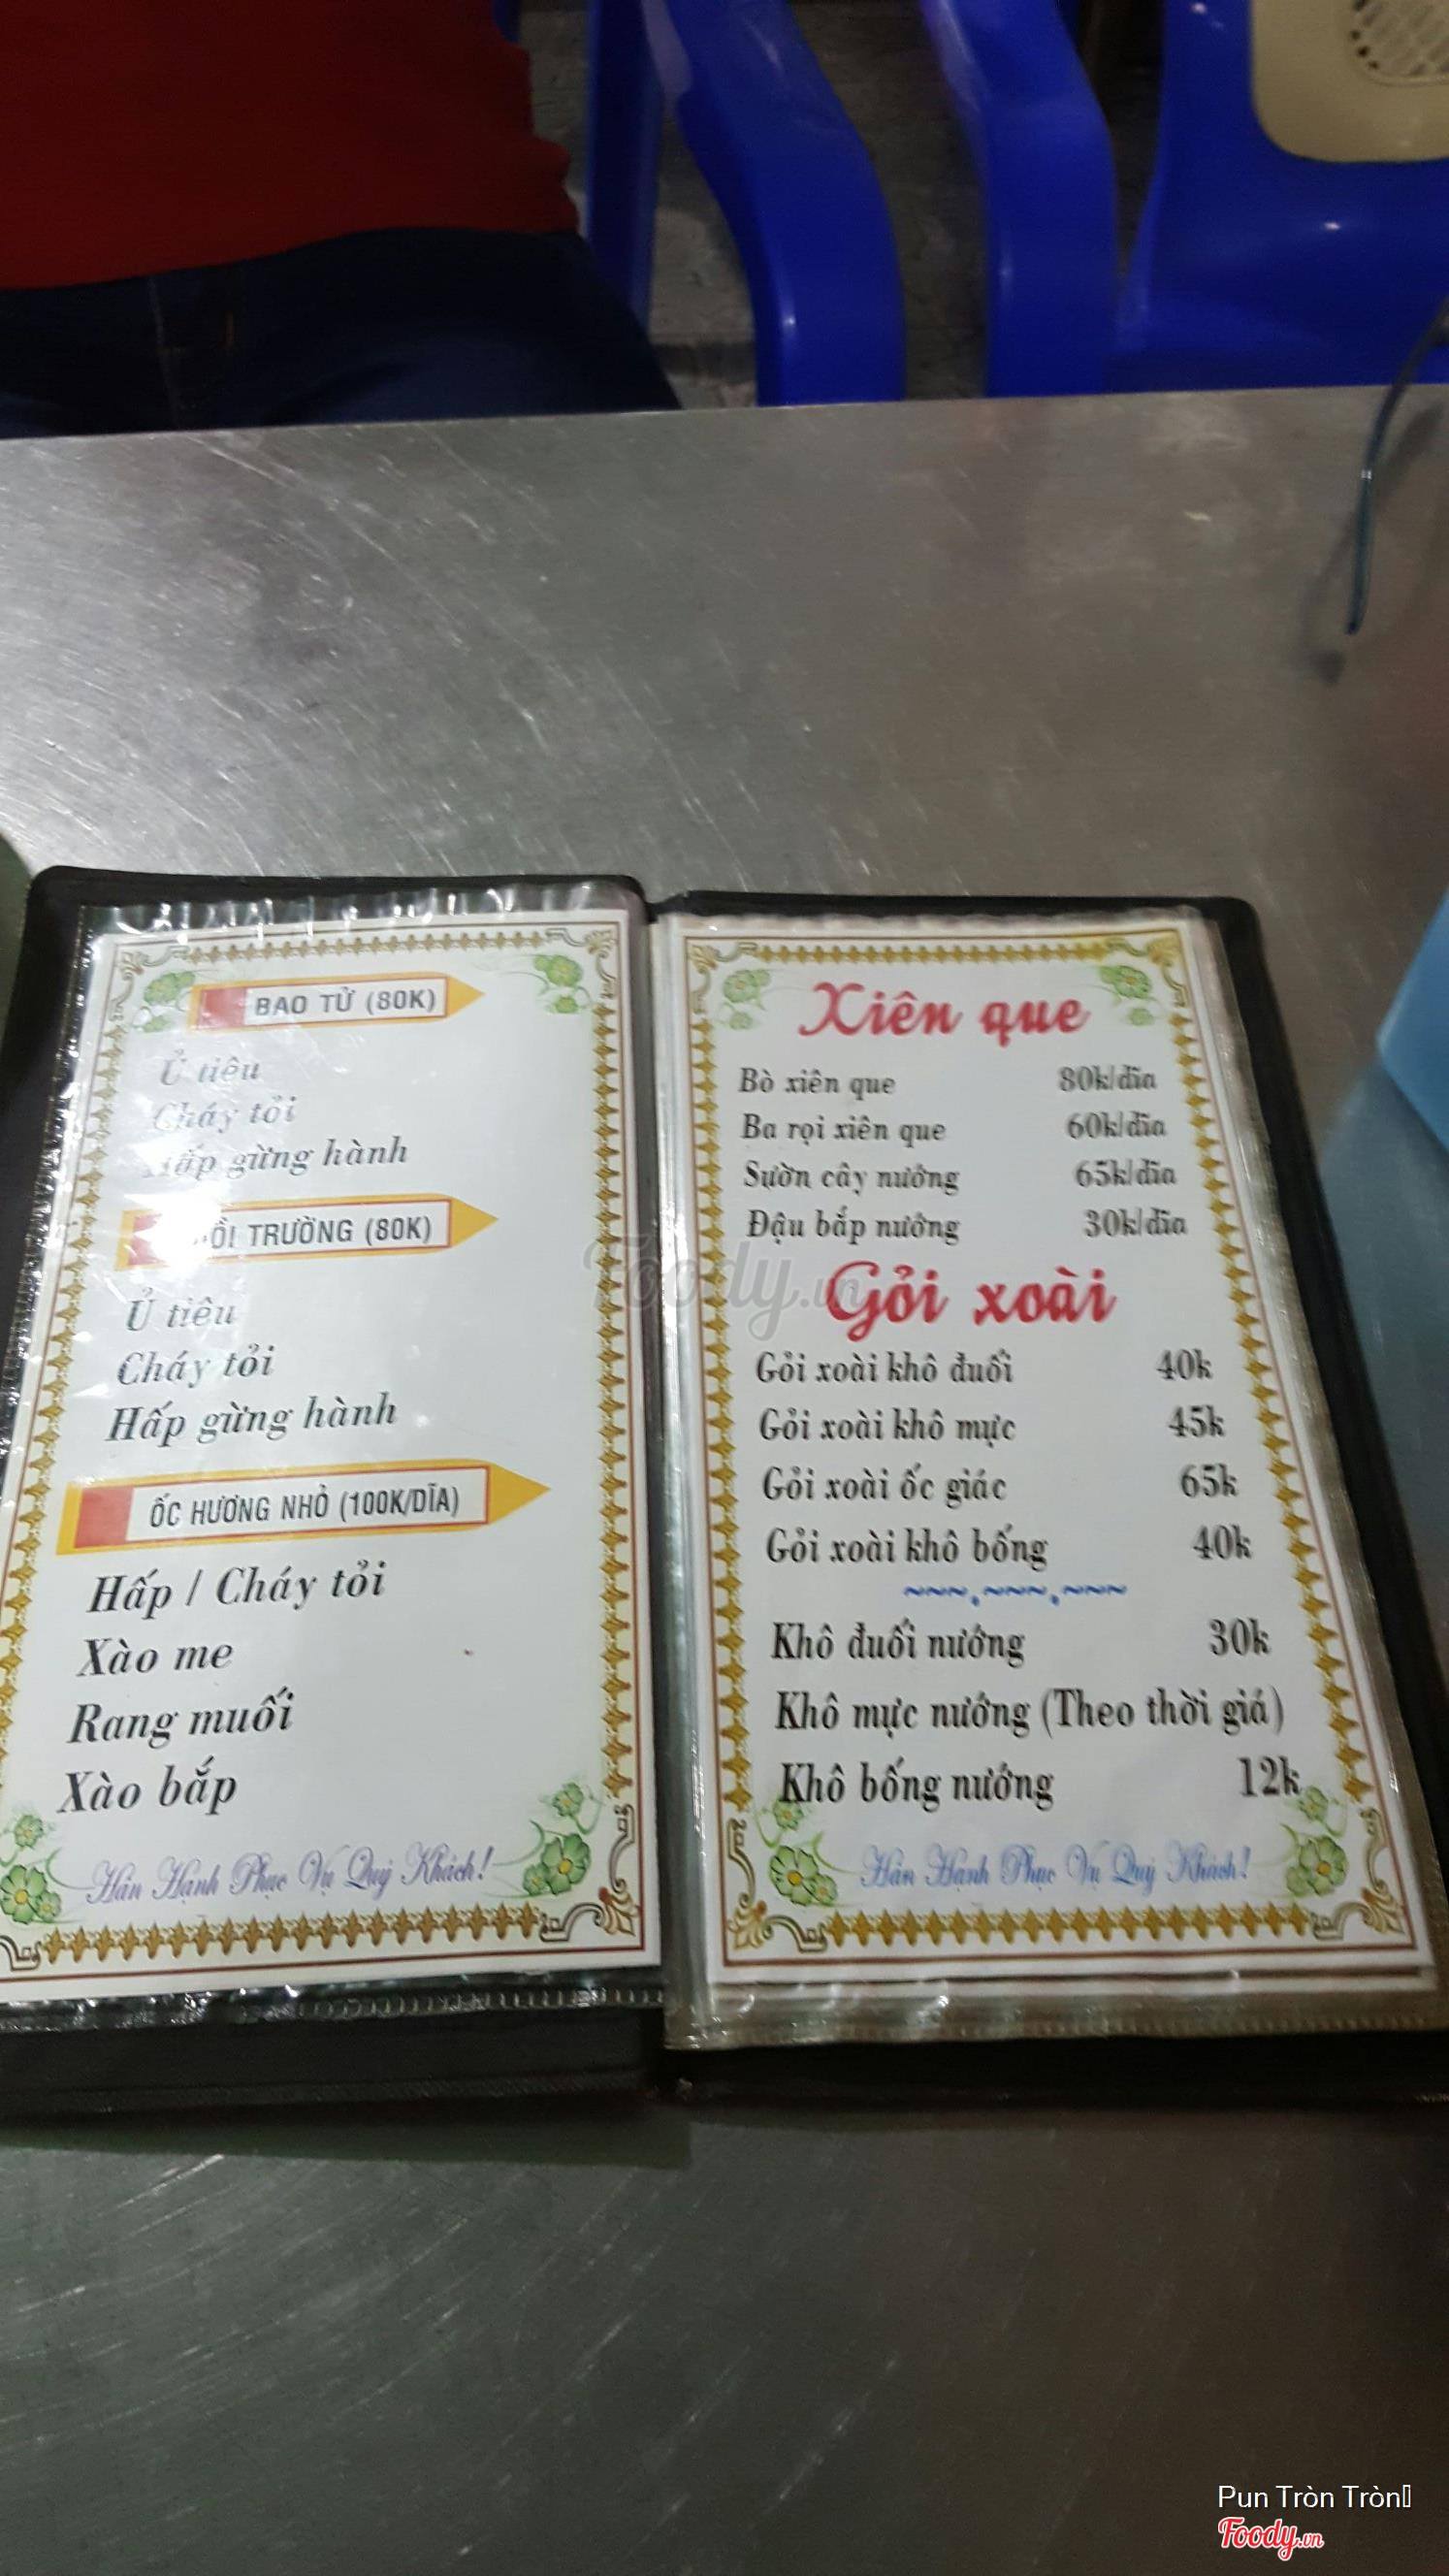 BAO TỬ (80K)
Ủ tiêu
Cháy tỏi
Hấp gừng hành
TRƯỜNG (80K)
Ủ tiêu
Cháy tỏi
Hấp gừng hành
ỐC HƯƠNG NHỎ (100K/DĨA)
Hấp / Cháy tỏi
Xào me
Rang muối
Xào bắp
Hân Hạnh Phục Vụ Quý Khách!
Xiên que
Bò xiên que 80k/đĩa
Ba rọi xiên que 60k/đĩa
Sườn cây nướng 65k/đĩa
Đậu bắp nướng 30k/đĩa
Gỏi xoài
Gỏi xoài khô đuối 40k
Gỏi xoài khô mực 45k
Gỏi xoài ốc giác 65k
Gỏi xoài khô bống 40k
Khô đuối nướng 30k
Khô mực nướng (Theo thời giá)
Khô bống nướng 12k
Hân Hạnh Phục Vụ Quý Khách!
Foody.vn
Pun Tròn Tròn
Foody.vn